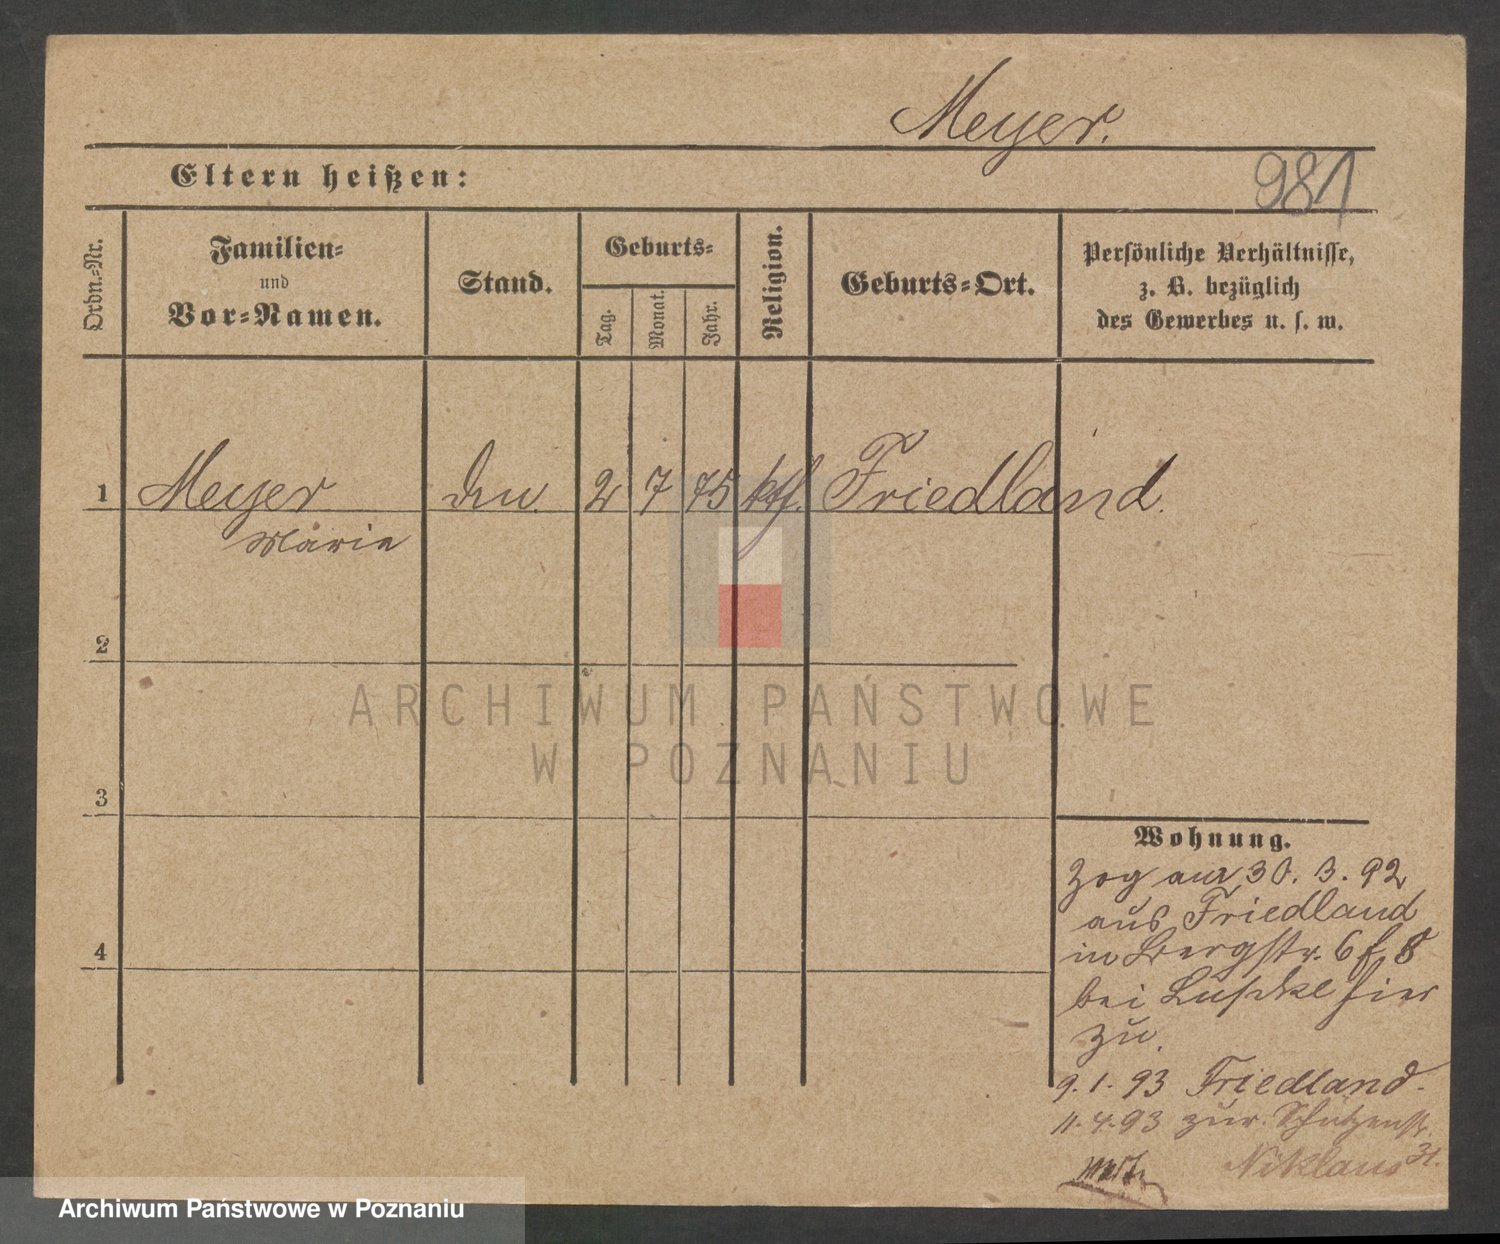 Meyer.
Eltern heißen:
981
Ordn.-Nr.
Familien-
und
Vor-Namen.
Stand.
Geburts-
Tag.
Monat.
Jahr.
Religion.
Geburts-Ort.
Persönliche Verhältnisse,
z. B. bezüglich
des Gewerbes u. s. w.
1 Meyer 2 7 75 Friedland.
Marie
2
3
4
ARCHIWUM PAŃSTWOWE
W POZNANIU
Wohnung.
Zog am 30. 3. 92
aus Friedland
in Bergstr. 6
bei hier
zu.
9. 1. 93 Friedland.
11. 4. 93 zur. Schützenstr.
Niklaus 31.
Archiwum Państwowe w Poznaniu